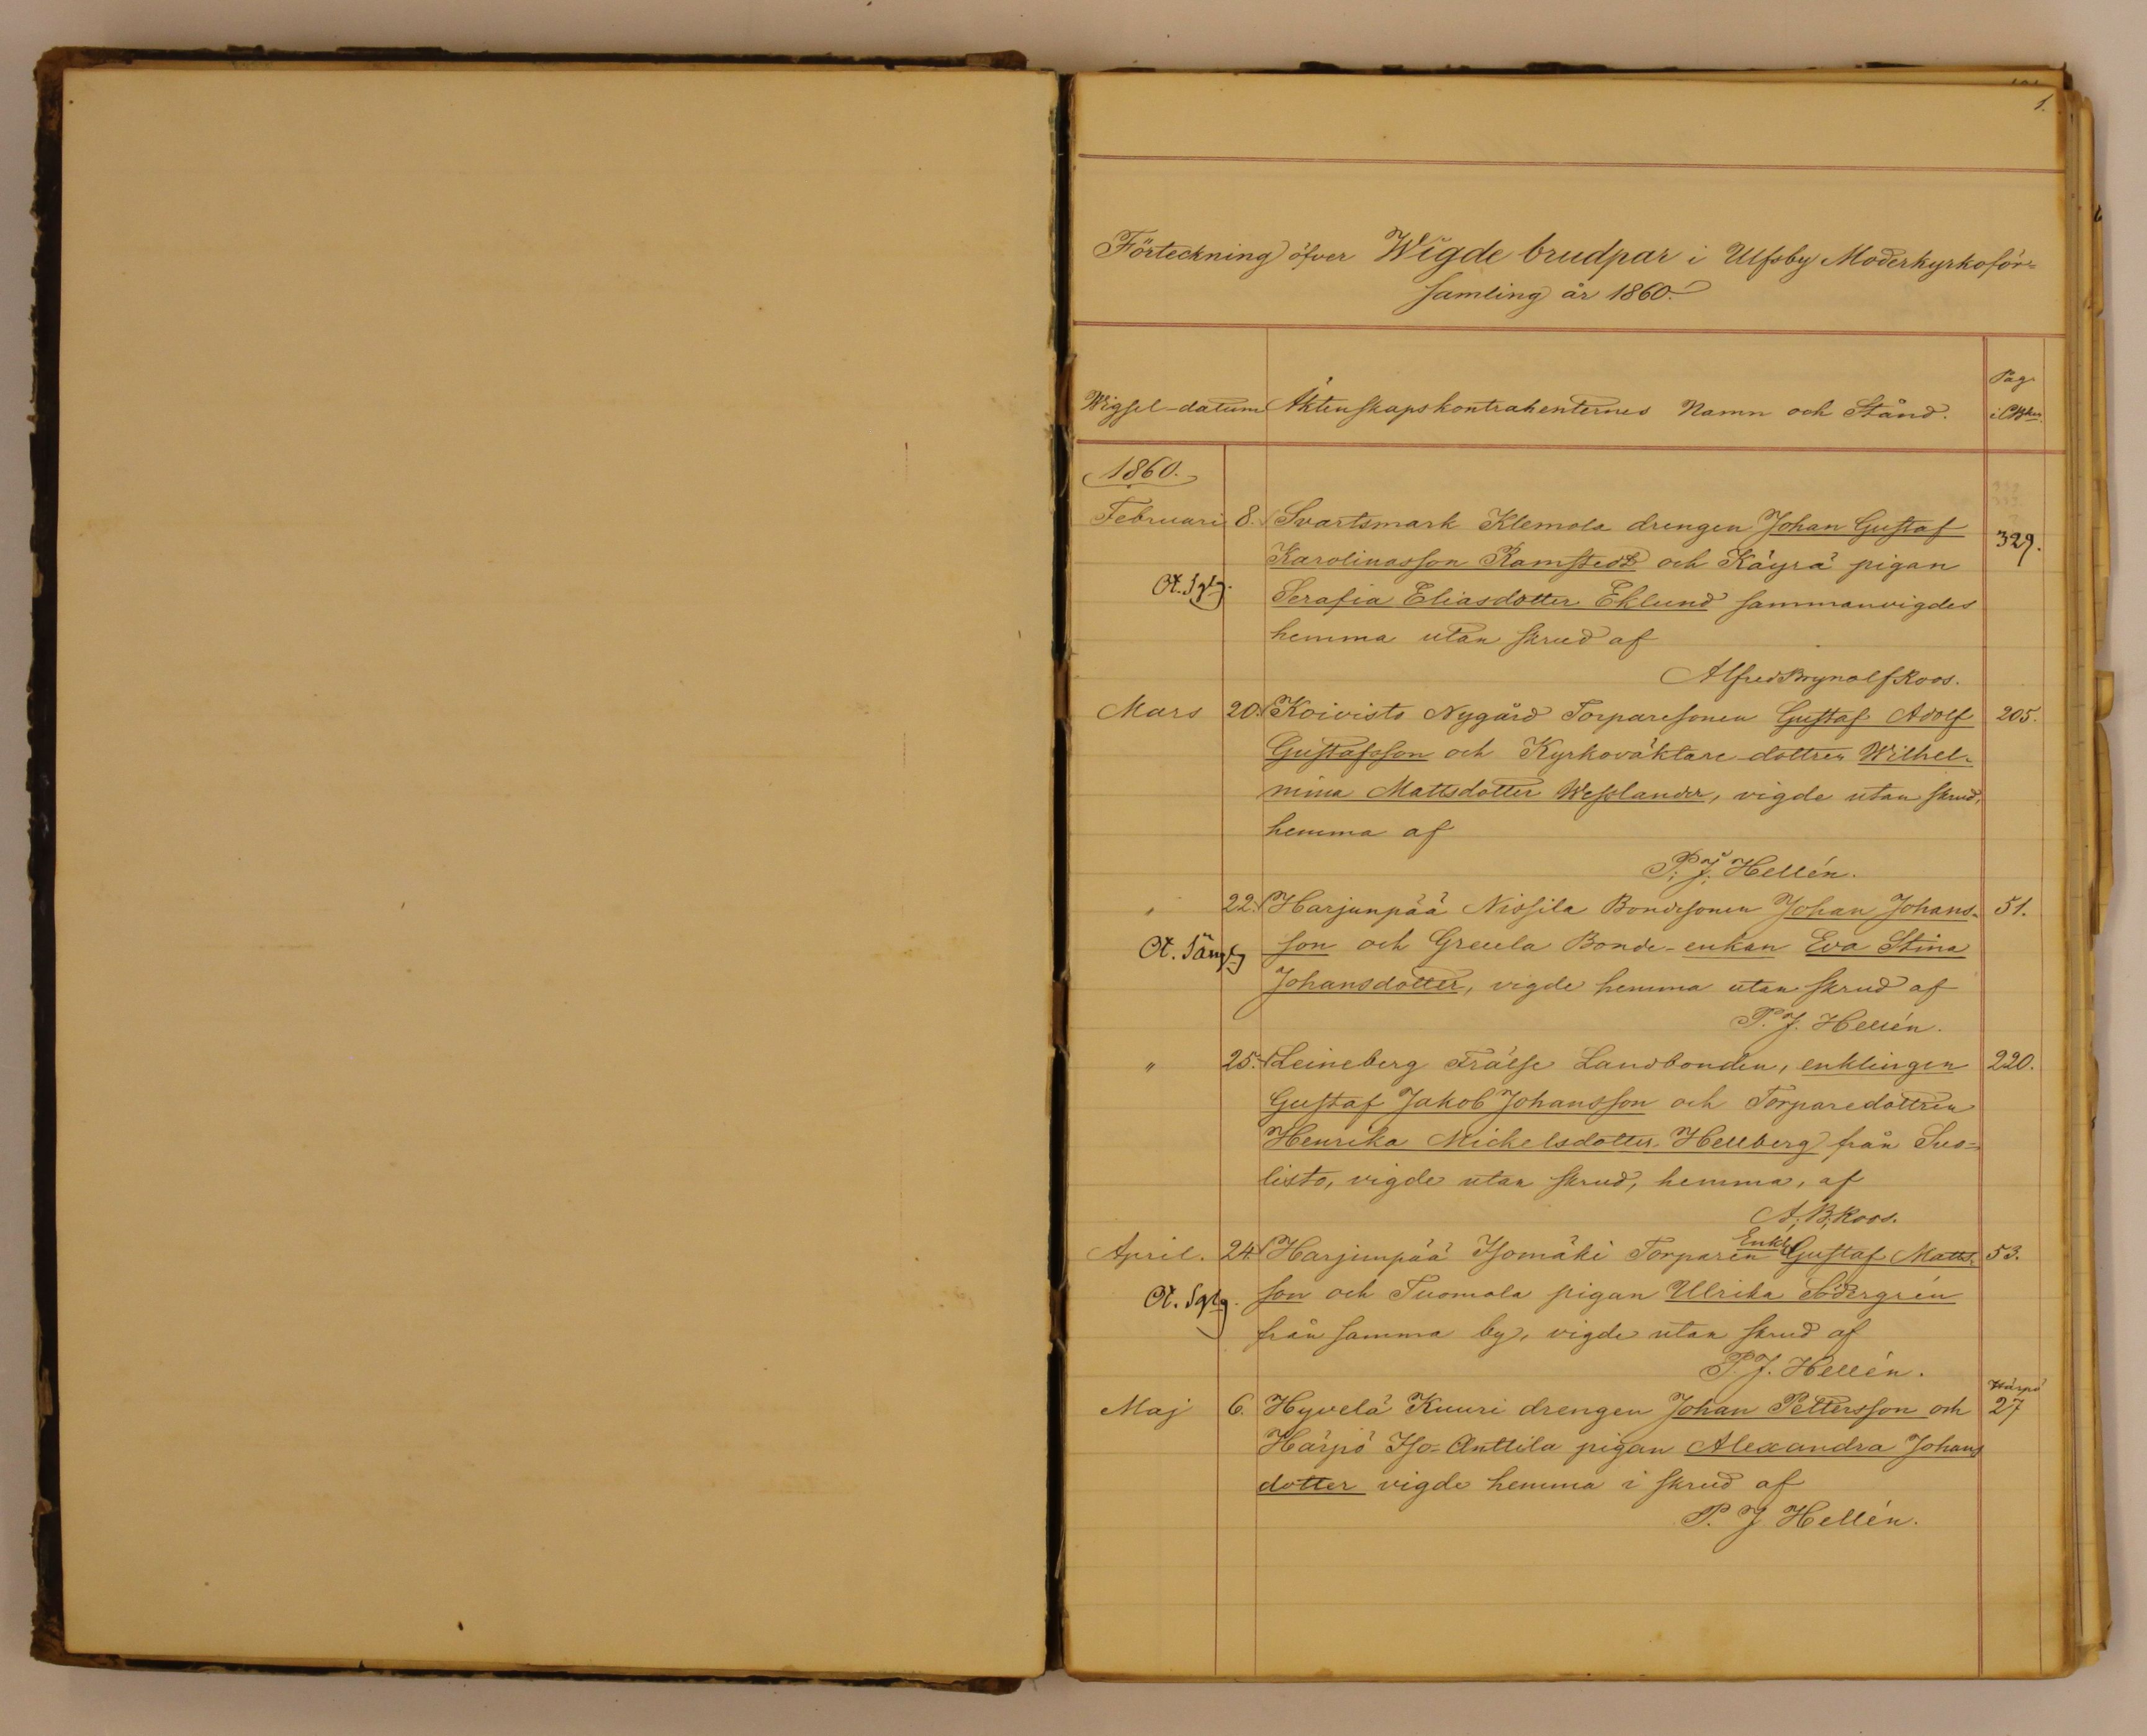 1.
Förteckning öfver Wigde brudpar i Ulfsby Moderkyrkoför=
samling år 1860.
Pag.
Wigsel-datum Äktenskapskontrahenternes Namn och Stånd.
1860.
Februari 8. Svartsmark Klemola drengen Johan Gustaf
329.
Karolinasson Ramstedt och Käyrä pigan
Serafia Eliasdotter Eklund sammanvigdes
hemma utan skrud af
Alfred Brynolf Koos.
Mars 20. Koivisto Nygård Torparesonen Gustaf Adolf 205.
Gustafsson och Kyrkoväktare-dottren Wilhel-
mina Mattsdotter Wesslander, vigde utan skrud,
hemma af
P. J. Hellén.
" 22. Harjunpää Nissila Bondesonen Johan Johans- 51.
son och Greula Bonde-enkan Eva Stina
Johansdotter, vigde hemma utan skrud af
P. J. Hellén.
" 25. Leineberg Frälse Landbonden, enklingen 220.
Gustaf Jakob Johansson och Torparedottren
Henrika Michelsdotter Hellberg från Suo=
listo, vigde utan skrud, hemma, af
A. B. Koos.
April. 24. Harjunpää Isomäki Torparen Enkl. Gustaf Matts- 53.
son och Tuomola pigan Ulrika Södergrén
från samma by, vigde utan skrud af
P. J. Hellén.
Härpö
Maj 6. Hyvelä Kuuri drengen Johan Pettersson och 27
Härpö Iso-Anttila pigan Alexandra Johans
dotter vigde hemma i skrud af
P. J. Hellén.